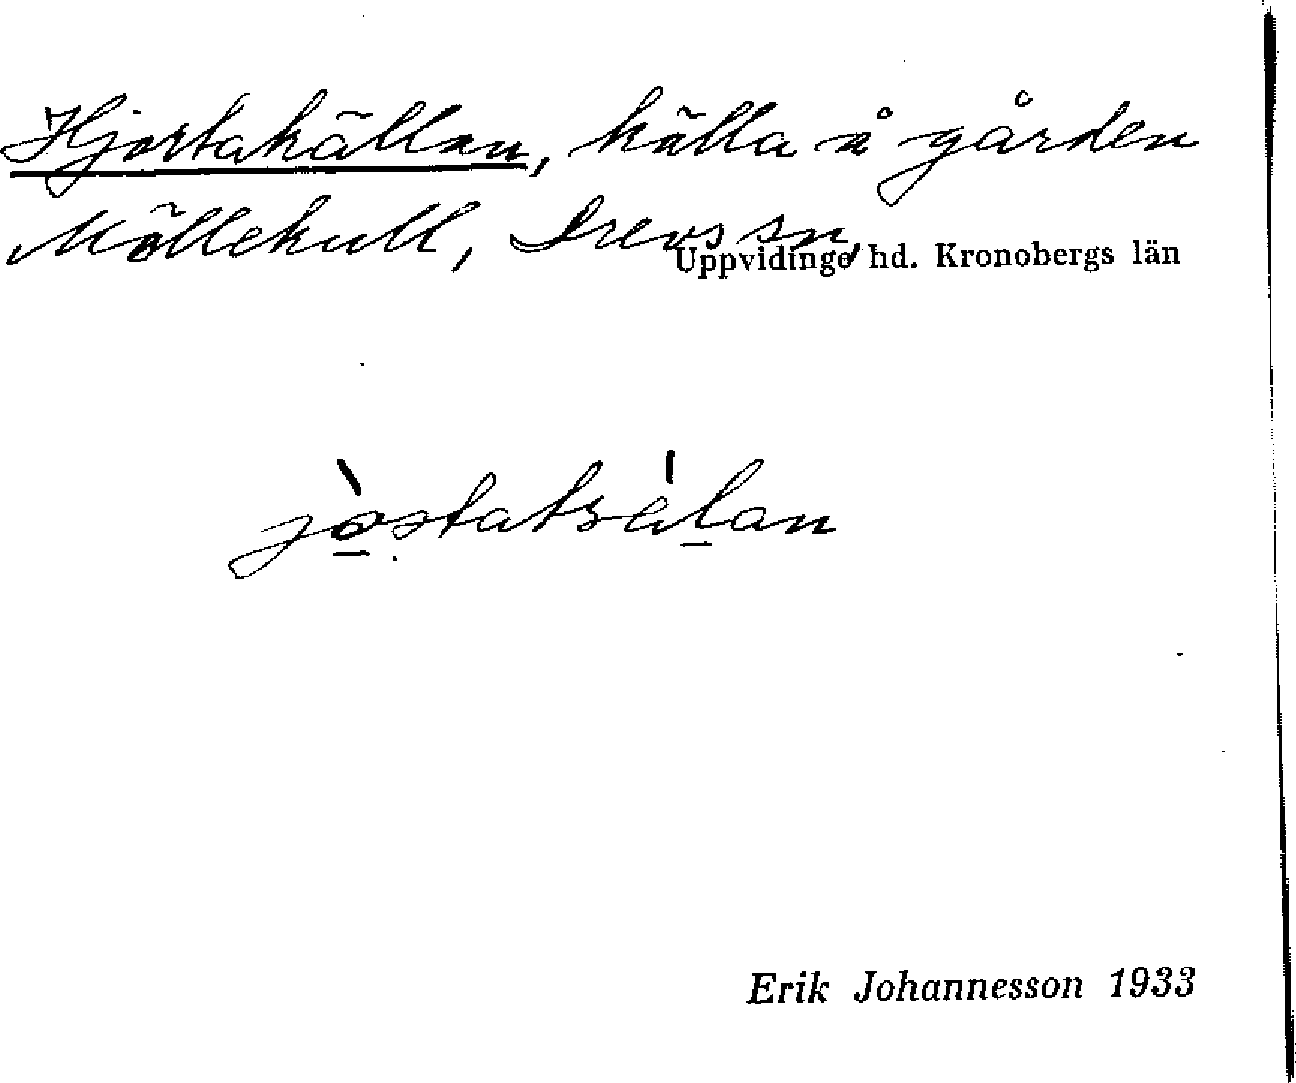 Hjortakällan, källa å gården
Möllekull, Drevs sn,
Uppvidinge hd. Kronobergs län
jòstatsálan
Erik Johannesson 1933